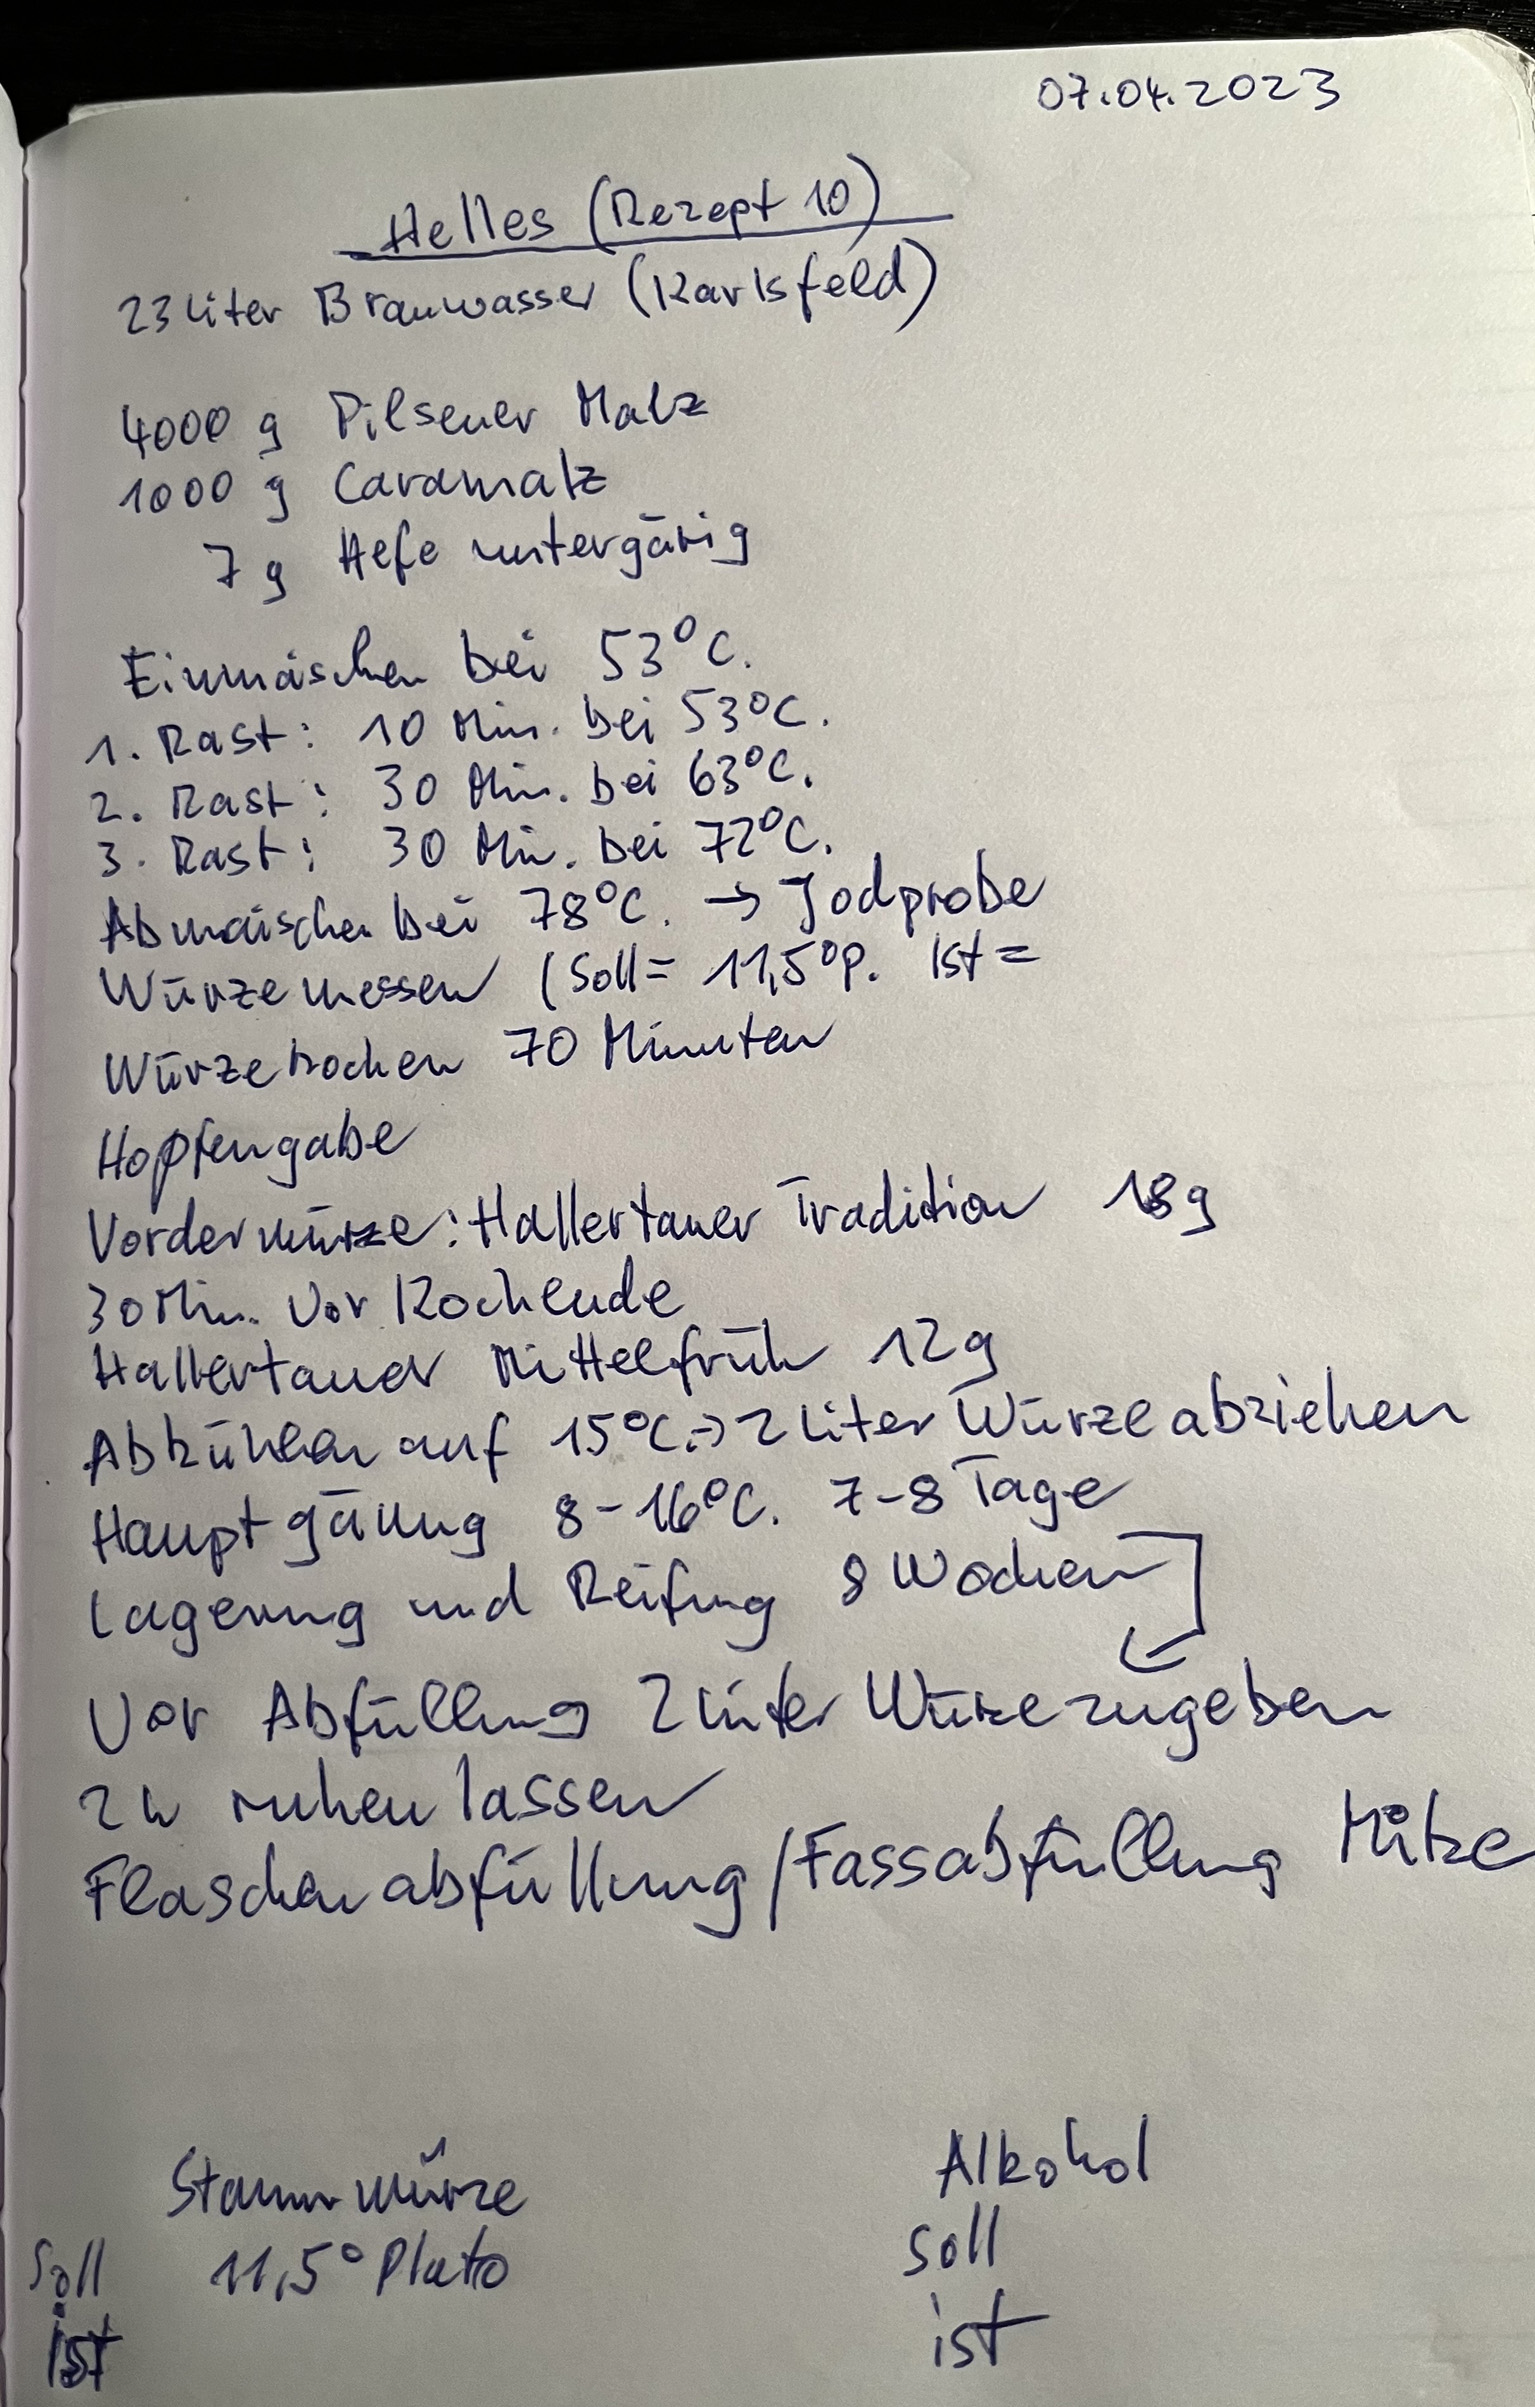 07.04.2023
Helles (Rezept 10)
23 Liter Brauwasser (Karlsfeld)
4000 g Pilsener Malz
1000 g Caramalz
7 g Hefe untergärig
Einmaischen bei 53°C.
1. Rast: 10 Min. bei 53°C.
2. Rast: 30 Min. bei 63°C.
3. Rast: 30 Min. bei 72°C.
Abmaischen bei 78°C. → Jodprobe
Würze messen (Soll = 11,5°P. Ist =
Würze kochen 70 Minuten
Hopfengabe
Vorderwürze: Hallertauer Tradition 18g
30 Min. vor Kochende
Hallertauer Mittelfrüh 12g
Abkühlen auf 15°C. → 2 Liter Würze abziehen
Hauptgärung 8-16°C. 7-8 Tage
Lagerung und Reifung 8 Wochen
Vor Abfüllung 2 Liter Würze zugeben
2 h ruhen lassen
Flaschenabfüllung/Fassabfüllung Mike
Stammwürze Alkohol
Soll 11,5° Plato soll
ist ist